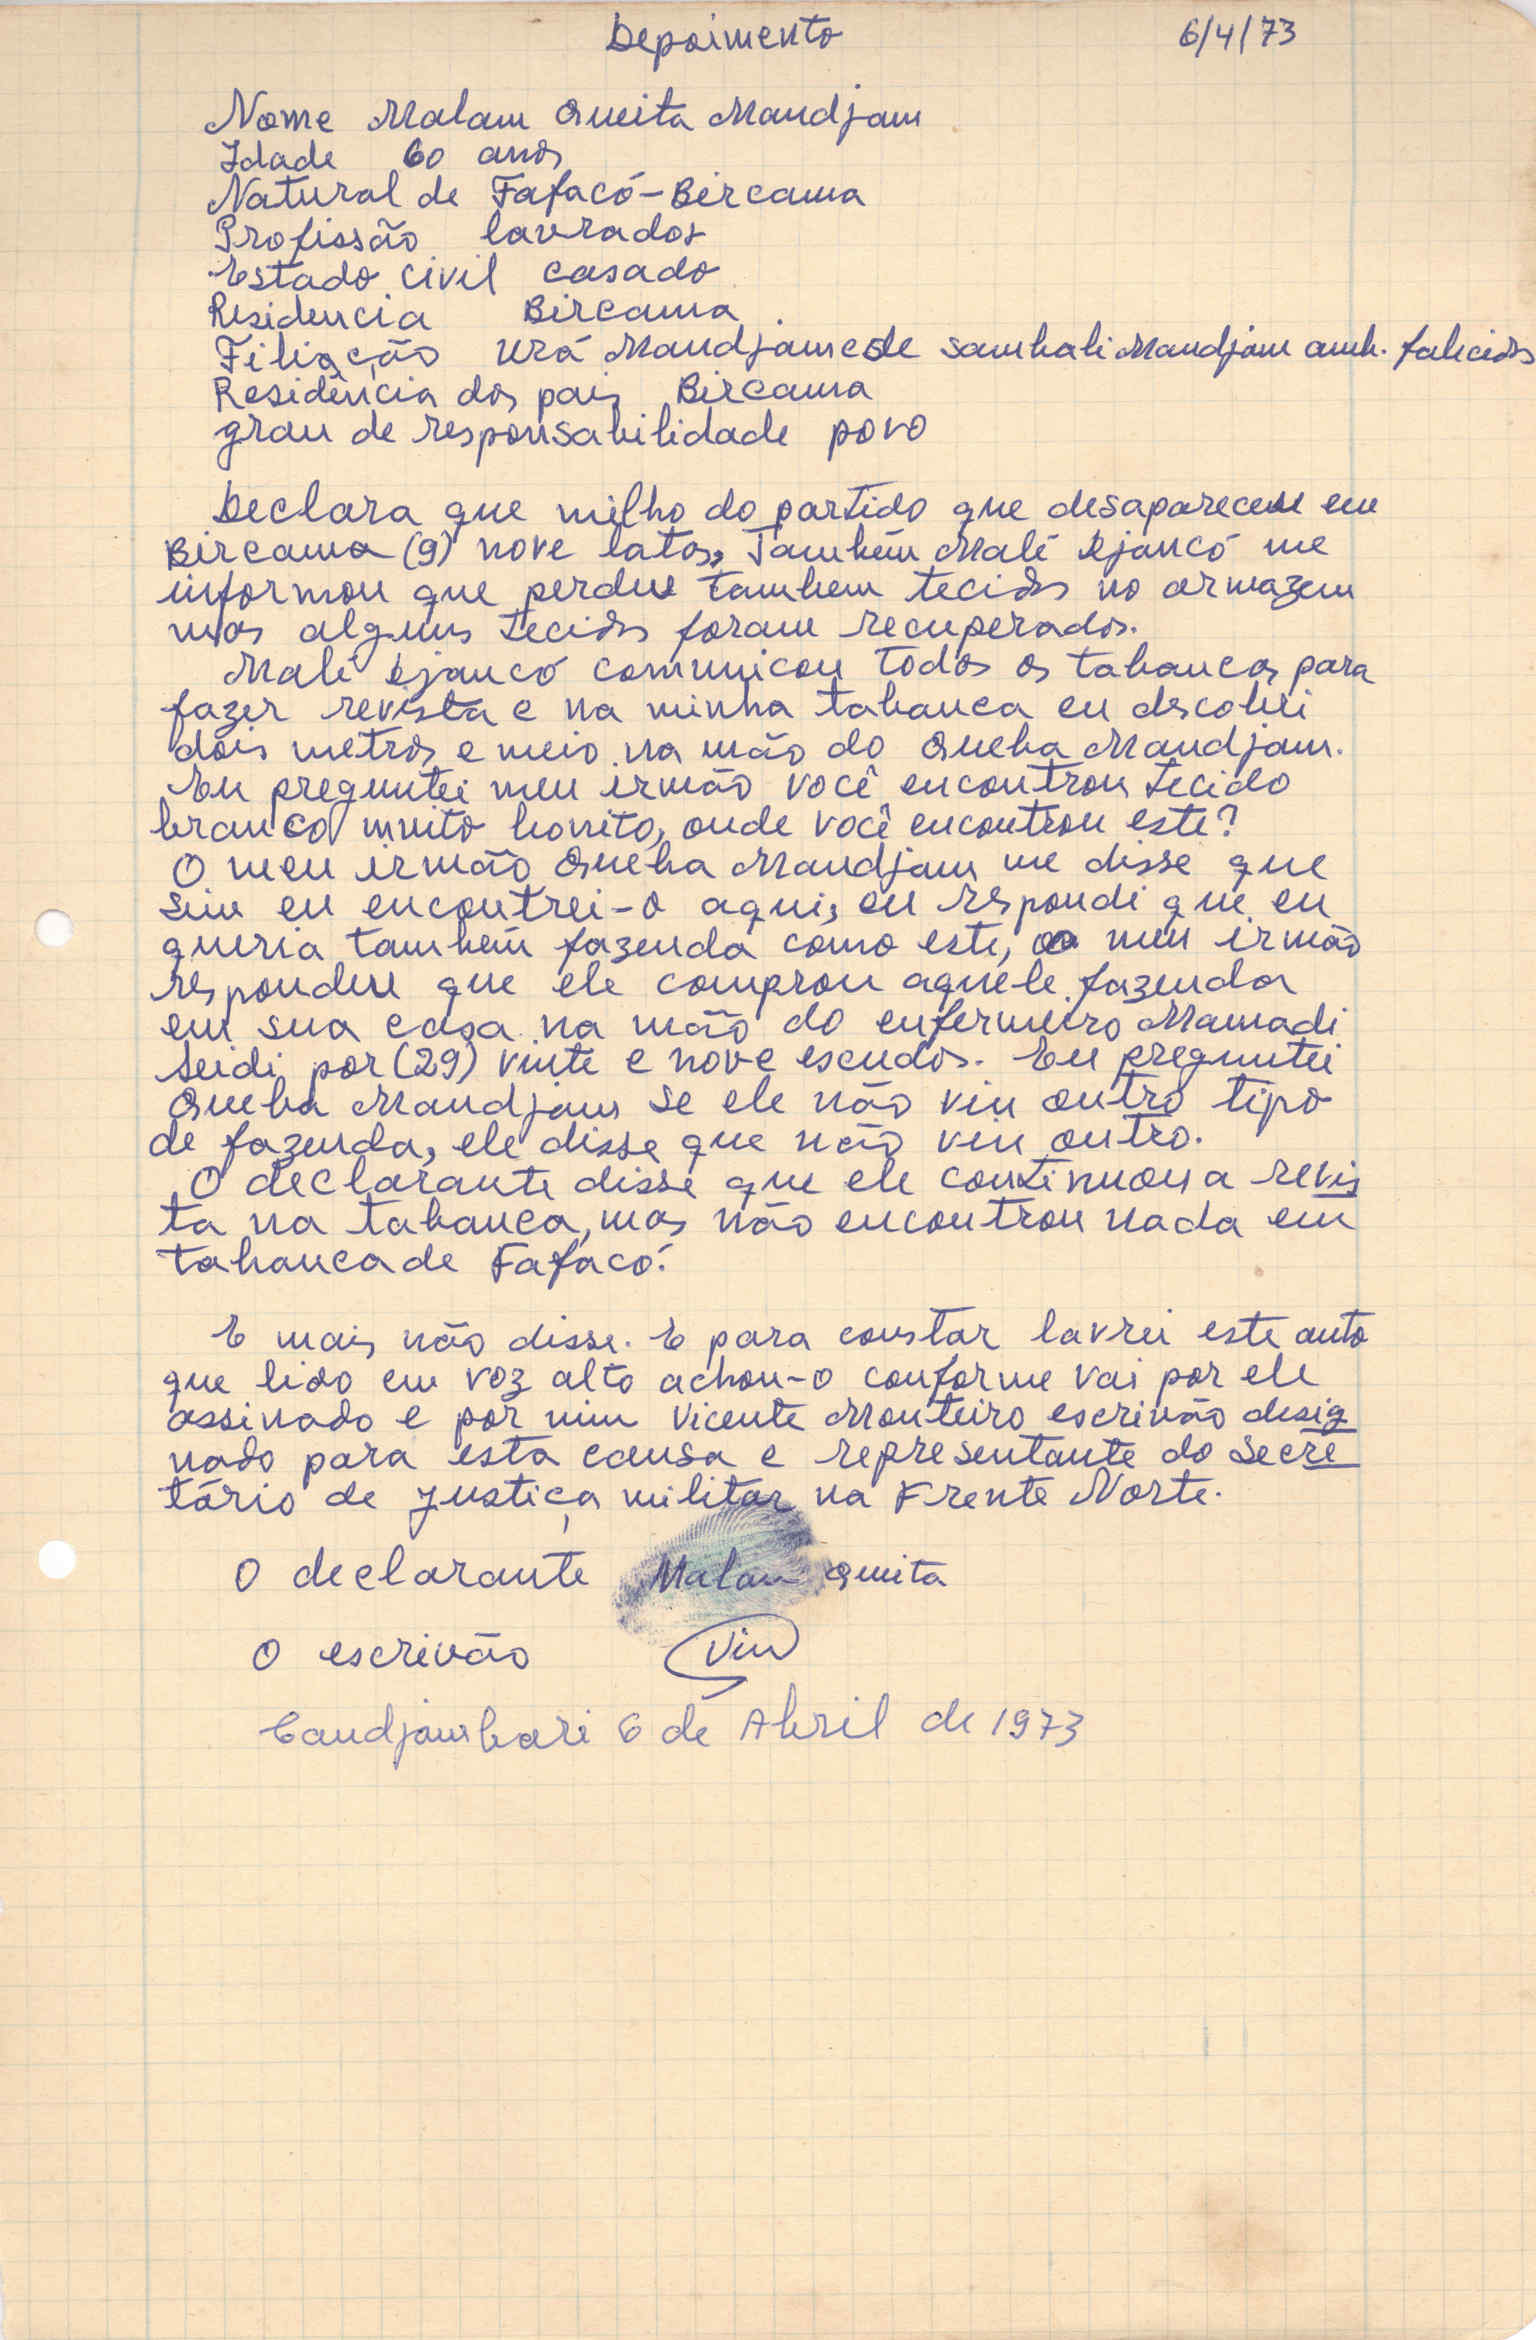 Depoimento 6/4/73
Nome Malam Queita Mandjam
Idade 60 anos
Natural de Fafacó-Bircama
Profissão lavrador
Estado civil casado
Residencia Bircama
Filiação Urá Mandjam e de Sambali Mandjam amb. falecidos
Residência dos pais Bircama
grau de responsabilidade povo
Declara que milho do partido que desapareceu em
Bircama (9) nove latas, Também Malé Djancó me
informou que perdeu tambem tecidos no armazem
mas alguns tecidos foram recuperados.
Malé Djancó comunicou todos os tabancas para
fazer revista e na minha tabanca eu descobri
dois metros e meio na mão do Queba Mandjam.
Eu preguntei meu irmão você encontrou tecido
branco muito bonito, onde você encontrou este?
O meu irmão Queba Mandjam me disse que
sim eu encontrei-o aqui, eu respondi que eu
queria também fazenda como este, o meu irmão
respondeu que ele comprou aquele fazenda
em sua casa na mão do enfermeiro Mamadi
Seidi por (29) vinte e nove escudos. Eu preguntei
Queba Mandjam se ele não viu outro tipo
de fazenda, ele disse que não viu outro.
O declarante disse que ele continuou a revis
ta na tabanca, mas não encontrou nada em
tabanca de Fafacó.
E mais não disse. E para constar lavrei este auto
que lido em voz alto achou-o conforme vai por ele
assinado e por mim Vicente Monteiro escrivão desig
nado para esta causa e representante do Secre
tário de Justiça militar na Frente Norte.
O declarante Malam Queita
O escrivão Vin
Candjambari 6 de Abril de 1973